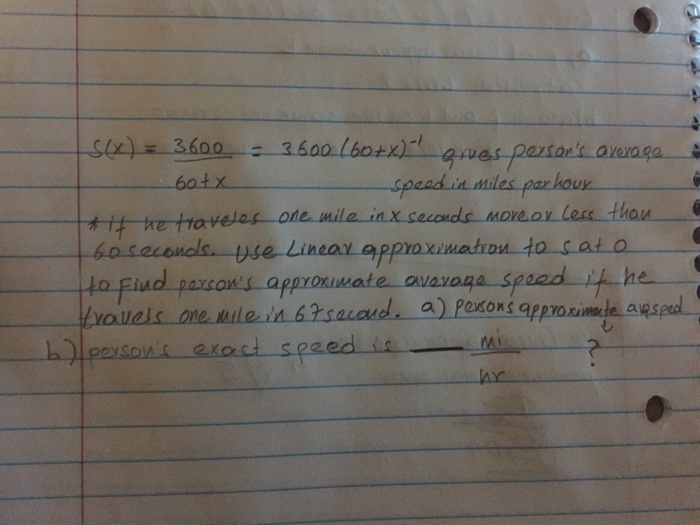 S(x) = 3600/60+x = 3600 (60+x)⁻¹ gives person's average
speed in miles per hour
* if he traveles one mile in x seconds more or less than
60 seconds. Use Linear approximation to s at 0
to Find person's approximate average speed if he
travels one mile in 67 second. a) persons approximate avg sped
b) person's exact speed is ___ mi/hr ?